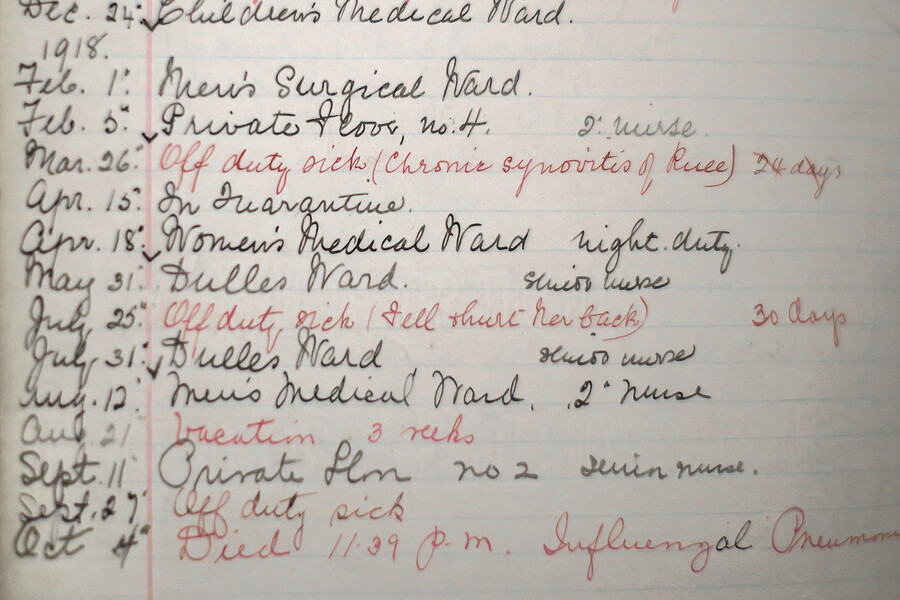 Dec. 24" Children's Medical Ward.
1918.
Feb. 1" Men's Surgical Ward.
Feb. 5" Private Floor, no. 4. 2" nurse.
Mar. 26" Off duty sick (Chronic synovitis of Knee) 24 days
Apr. 15" In Quarantine.
Apr. 18" Women's Medical Ward night duty.
May 31" Dulles Ward. senior nurse
July 25" Off duty sick (Fell & hurt her back) 30 days
July 31" Dulles Ward senior nurse
Aug. 12" Men's Medical Ward. 2" nurse
Aug 21 Vacation 3 weeks
Sept. 11" Private no 2 senior nurse.
Sept. 27" Off duty sick
Oct 4" Died 11.39 p.m. Influenzal